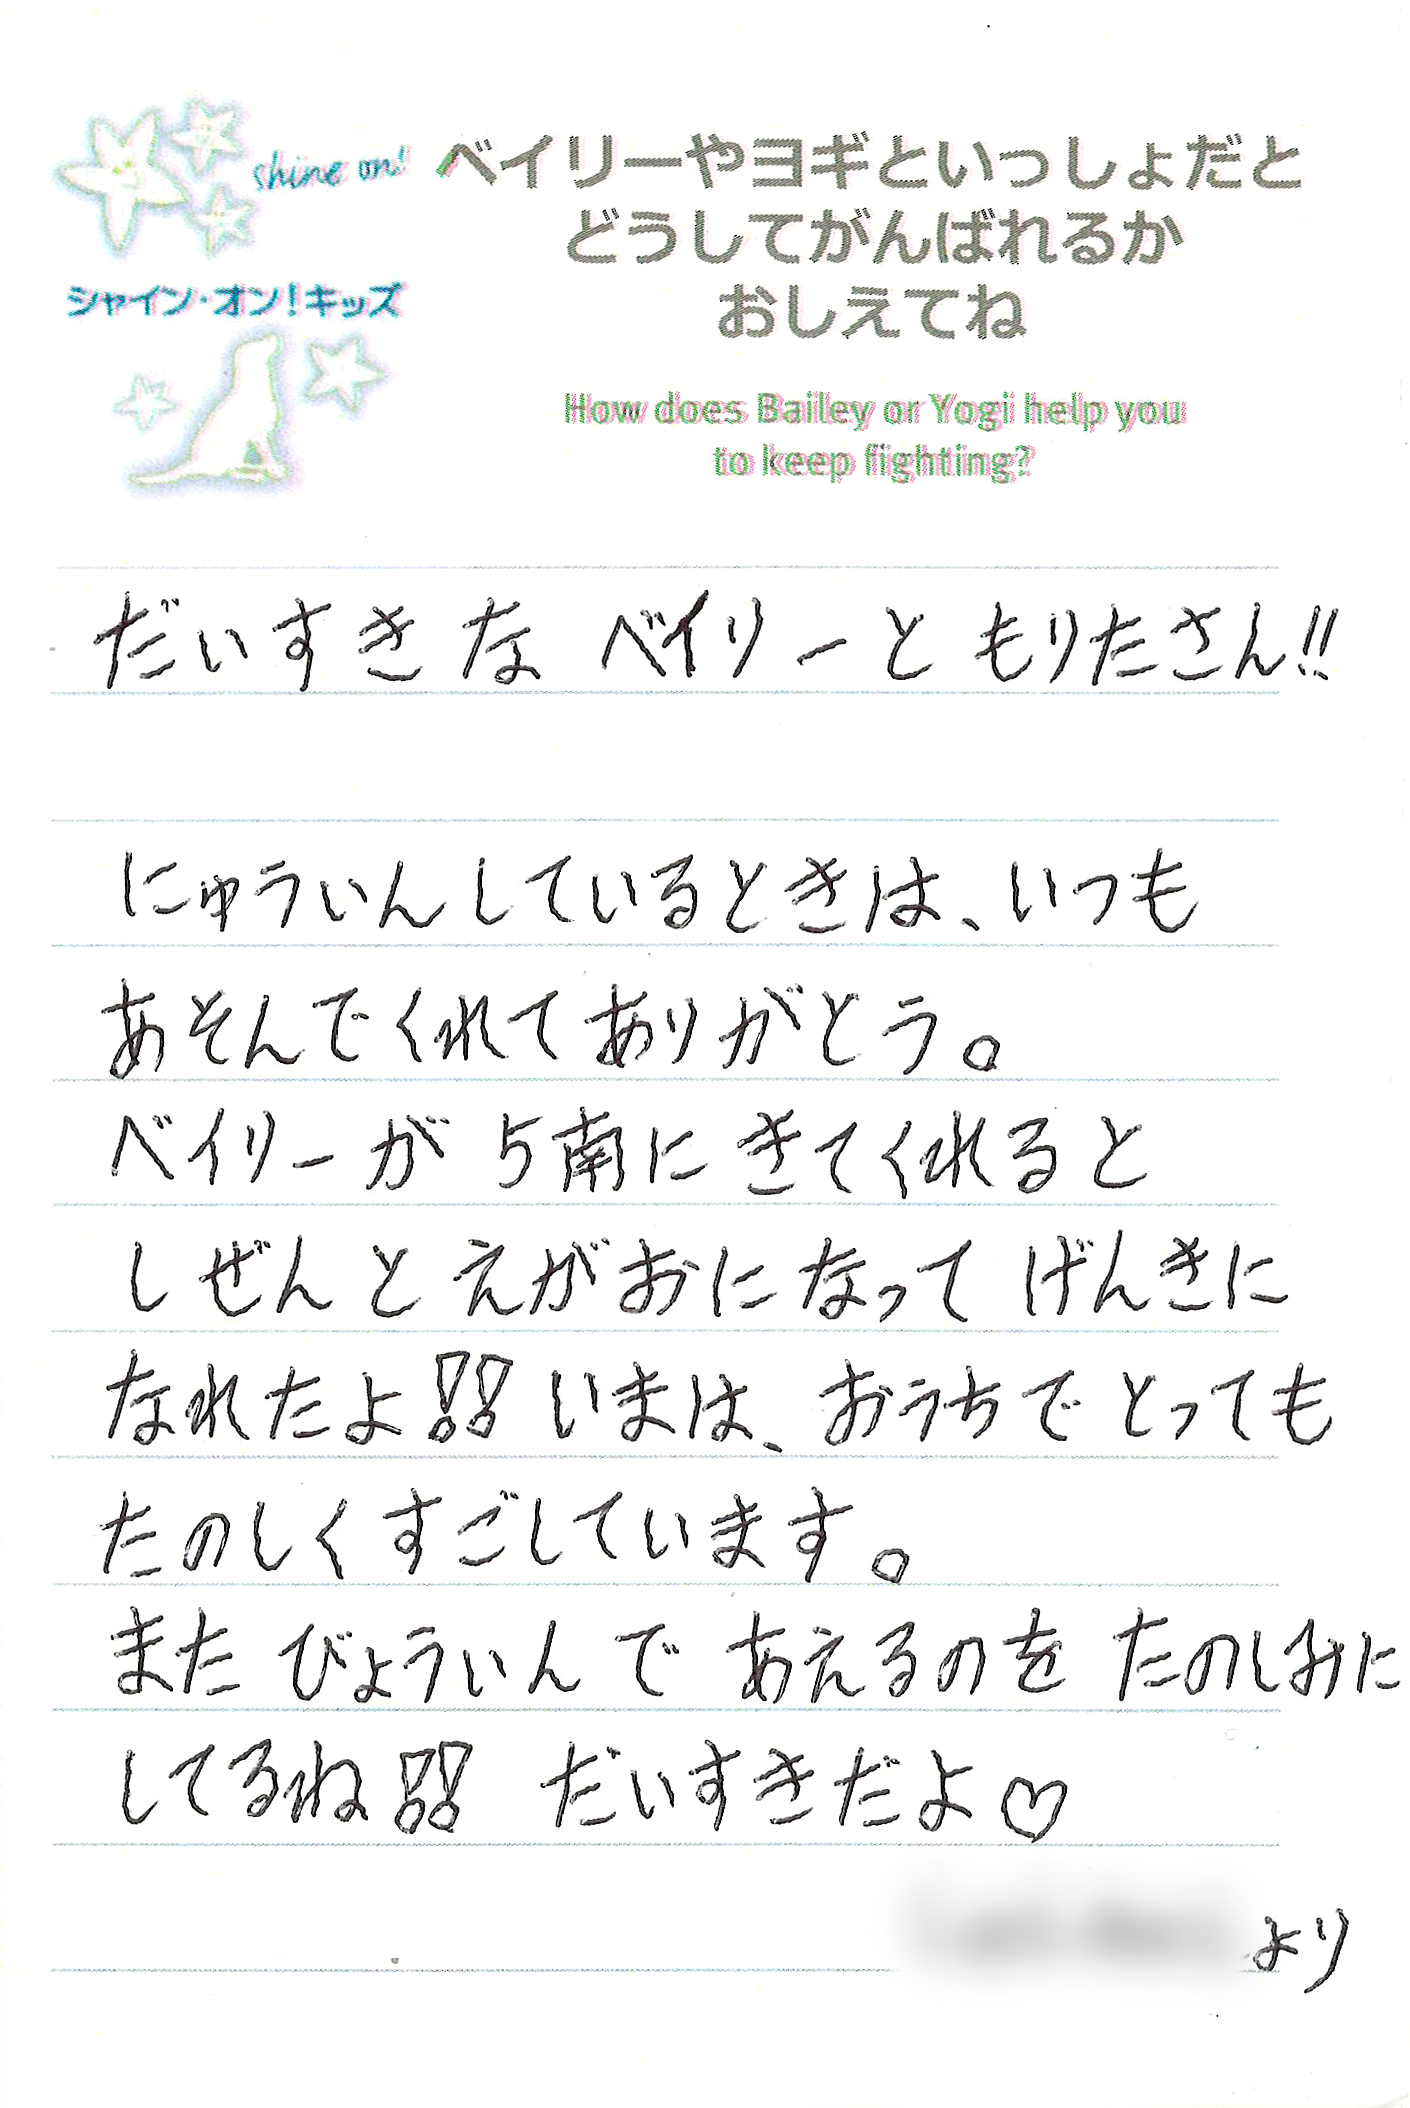 shine on!
シャイン・オン!キッズ
ベイリーやヨギといっしょだと
どうしてがんばれるか
おしえてね
How does Bailey or Yogi help you
to keep fighting?
だいすきな ベイリーと もりたさん!!
にゅういんしているときは、いつも
あそんでくれてありがとう。
ベイリーが 5南に きてくれると
しぜんと えがおに なって げんきに
なれたよ!! いまは、おうちで とっても
たのしくすごしています。
また びょういんで あえるのを たのしみに
してるね!! だいすきだよ♡
より